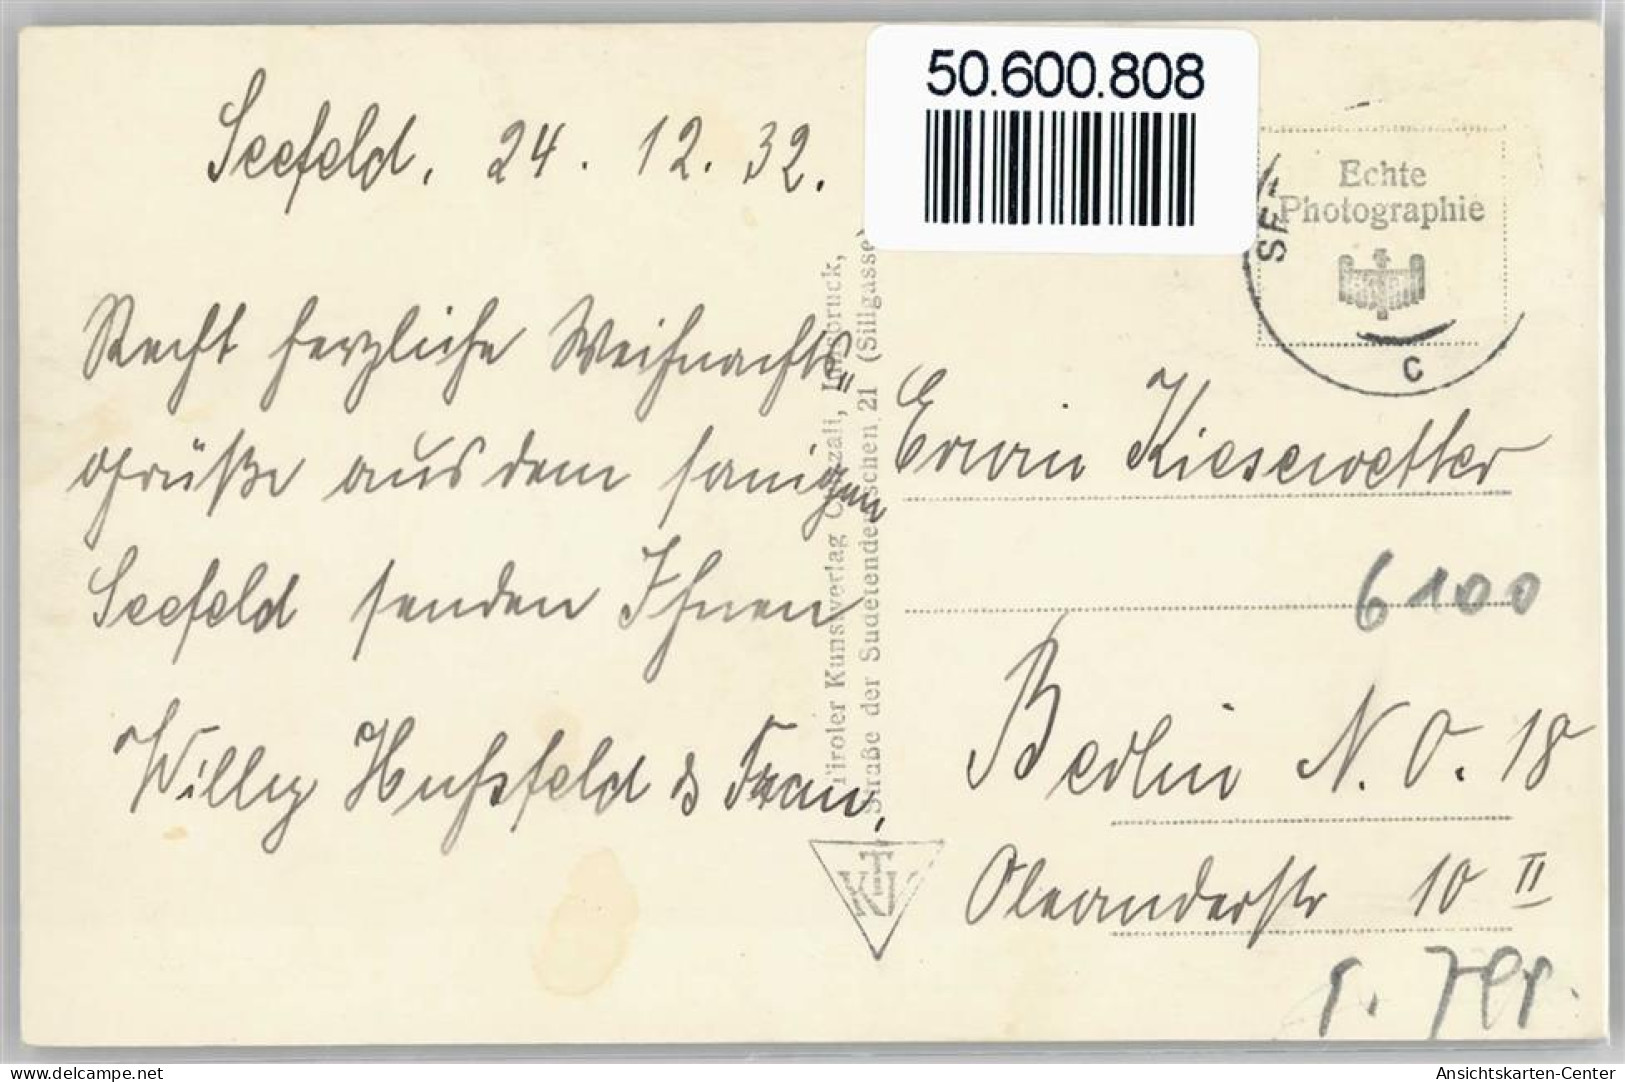 50.600.808
Seefeld, 24. 12. 32.
Echte
Photographie
SEE
C
Recht herzliche Weihnachts„
grüße aus dem sonnigen
Seefeld senden Ihnen
Willy Hufsfeld & Frau,
Tiroler Kunstverlag Chizzali, Innsbruck,
Straße der Sudetendeutschen 21 (Sillgasse)
KTV
Erwin Kiesewetter
6100
Berlin N.O. 18
Oleanderstr 10 II
www.delcampe.net
Ansichtskarten-Center